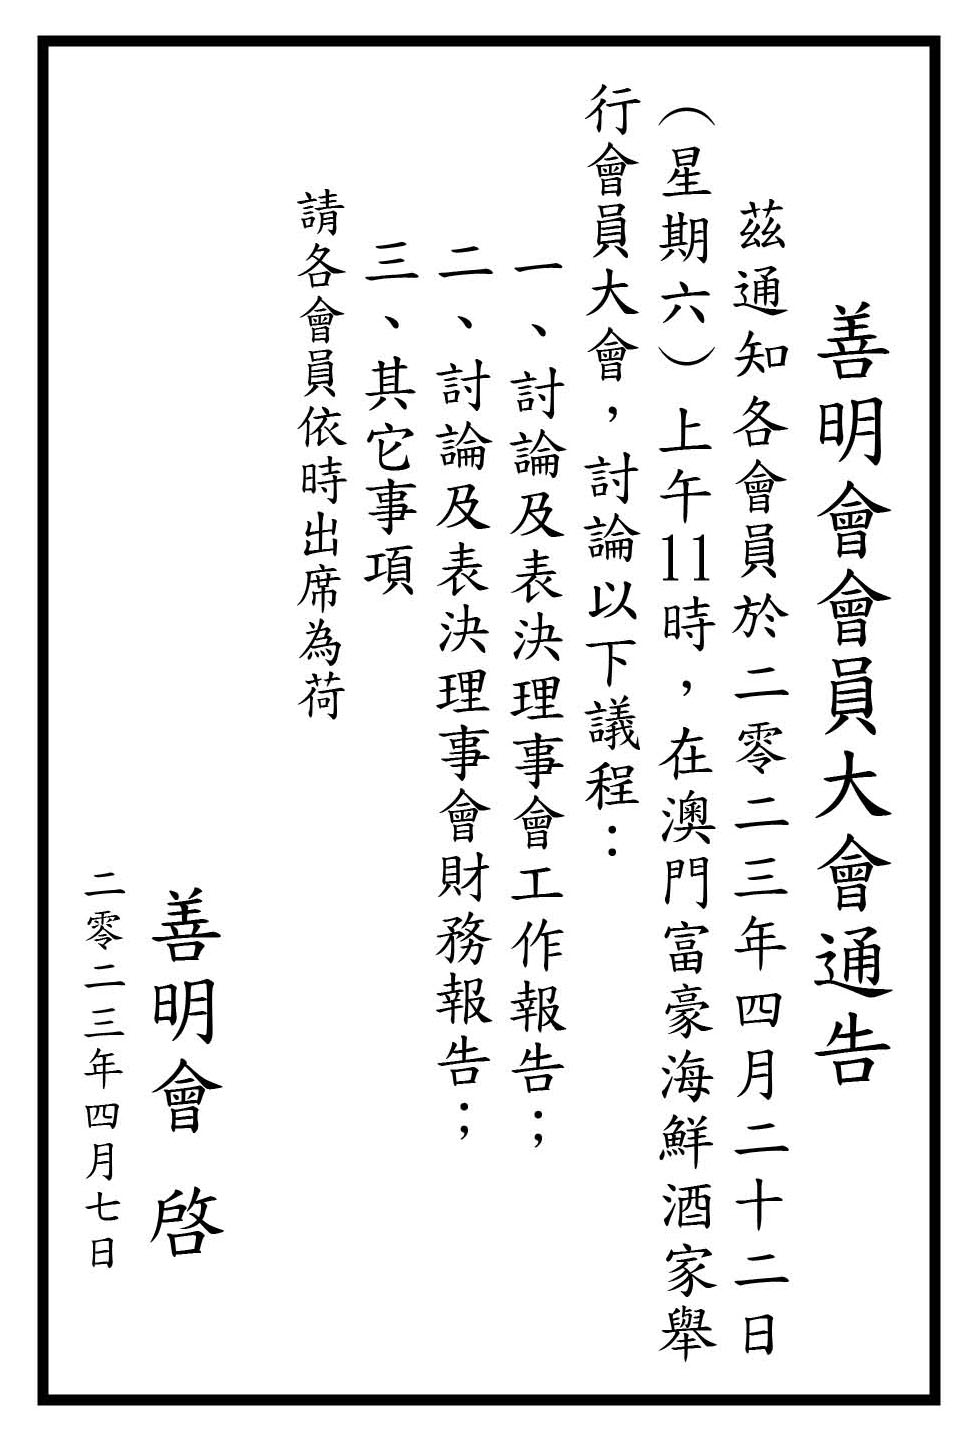 善明會會員大會通告
茲通知各會員於二零二三年四月二十二日
（星期六）上午11時，在澳門富豪海鮮酒家舉
行會員大會，討論以下議程：
一、討論及表決理事會工作報告；
二、討論及表決理事會財務報告；
三、其它事項
請各會員依時出席為荷
善明會 啓
二零二三年四月七日